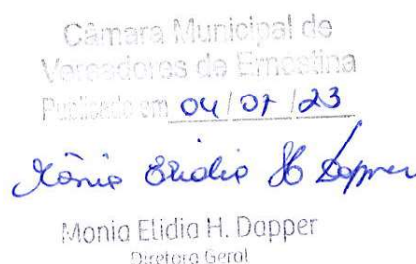 Câmara Municipal de
Vereadores de Ernestina
Publicado em 04/07/23
Mônia Elidia H Dapper
Monia Elidia H. Dapper
Diretora Geral